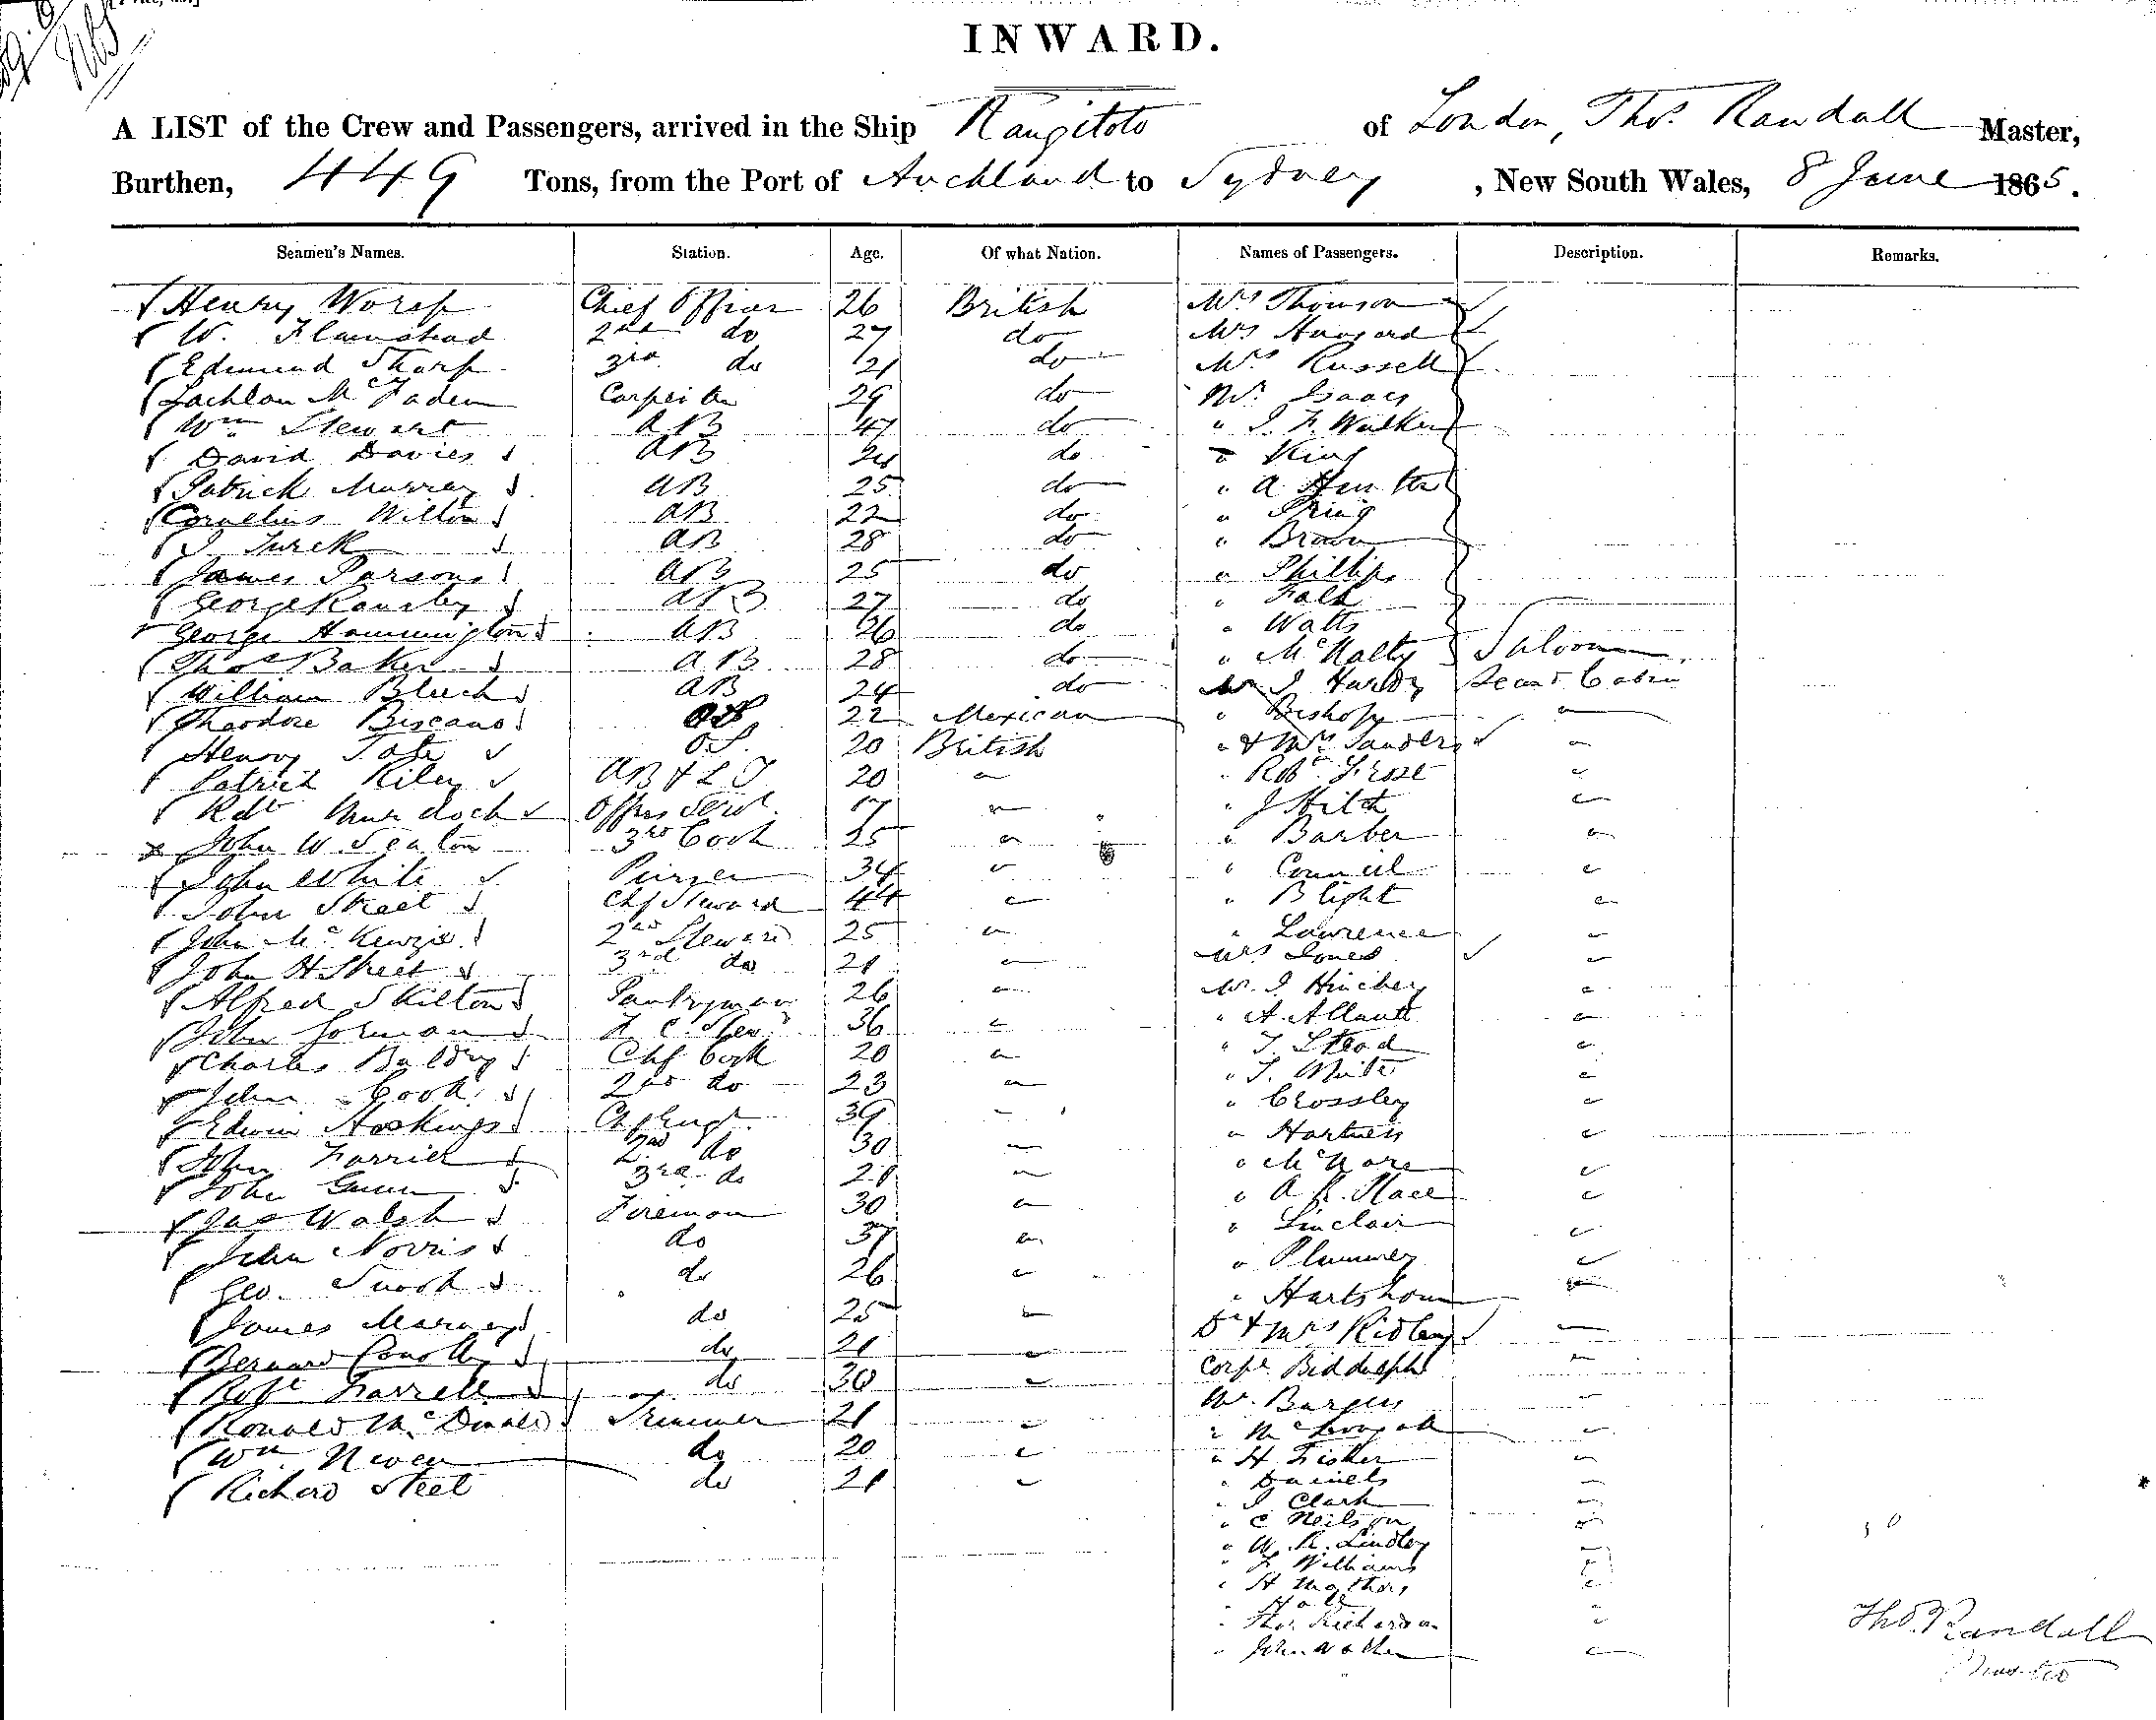 INWARD.
A LIST of the Crew and Passengers, arrived in the Ship Rangitoto of London, Thos. Randall Master,
Burthen, 449 Tons, from the Port of Auckland to Sydney, New South Wales, 8 June 1865.
Seamen's Names. Station. Age. Of what Nation. Names of Passengers. Description. Remarks.
Henry Worsp Chief Officer 26 British Mrs Thomson
W. Flamstead 2nd do 27 do Mrs
Edmund Sharp 3rd do 21 do Mrs Russell
Lachlan McFaden Carpenter 29 do Mr. Isaacs
Wm. Stewart AB 47 do " J. F. Walker
David Davies AB 24 do " King
Patrick Murray AB 25 do " A Hamilton
Cornelius Wilton AB 22 do " Spring
J Turck AB 28 do " Brown
James Parsons AB 25 do " Phillips
George Ransley AB 27 do " Falk
George Hammington AB 26 do " Watts
Thos Baker AB 28 do " McNalty Saloon
William Bleech AB 24 do Mr J Hardy Second Cabin
Theodore Biscano OS 22 Mexican " Bishop "
Henry Tate OS. 20 British " & Mrs Sanders "
Patrick Riley AB & L T 20 " " Robt. Frost "
Robt Murdoch Offrs Servt. 17 " " J Hitch "
John W. Seaton 3rd Cook 25 " " Barber "
John White Purser 34 " " Council "
John Street Chf Steward 44 " " Blight "
John McKenzie 2nd Steward 25 " " Lawrence "
John H Street 3rd do 21 " Mrs Jones "
Alfred Skilton Pantryman 26 " Mr. J Hinchey "
John Gorman F. C. Stewd 36 " " A. Allautt "
Charles Baldry Chf Cook 20 " " T. Stead "
John Cook 2nd do 23 " " T. White "
Edwin Hoskings Chf Engr. 39 " " Crossley "
John Farrier 2nd do 30 " " Hartness "
John Gunn 3rd do 21 " " McNare "
Jas Walsh Fireman 30 " " A. R. Place "
John Norris do 37 " " Sinclair "
Geo. Snook do 26 " " Plummer "
James Marney do 25 " " Hartshorn "
Bernard Conolly do 21 " Dr & Mrs Ridley "
Robt Farrell do 30 " Corpl Biddulph "
Ronald McDonald Trimmer 21 " Mr. Burgess "
Wm. Niven do 20 " "
Richard Steel do 21 " " H Fisher "
" Daniels "
" J Clark "
" C Neilson "
" W. R. Lindley "
" F Williams "
" H Mathers "
" Hall "
" Thos. Richardson "
" John Walker "
Thos. Randall
Master